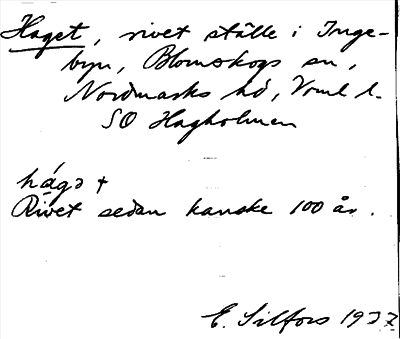 Haget, rivet ställe i Inge-
byn, Blomskogs sn,
Nordmarks hd, Vrml l.
SO Hagholmen
hágə +
Rivet sedan kanske 100 år.
E. Silfors 1937